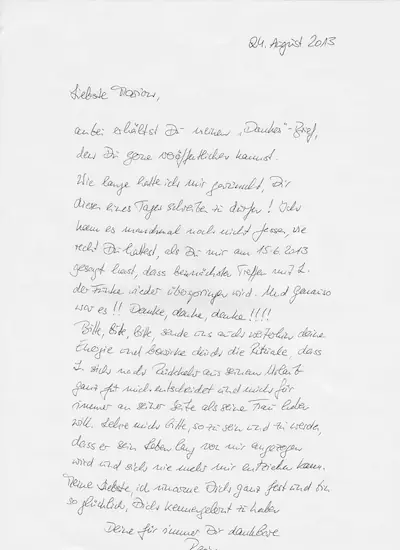 24. August 2013
Liebste Marion,
anbei erhältst Du meinen „Danke"-Brief,
den Du gerne veröffentlichen kannst.
Wie lange hatte ich mir gewünscht, Dir
diesen eines Tages schreiben zu dürfen! Ich
kann es manchmal noch nicht fassen, wie
recht Du hattest, als Du mir am 15.6.2013
gesagt hast, dass beim nächsten Treffen mit J.
der Funke wieder überspringen wird. Und genauso
war es!! Danke, danke, danke!!!!
Bitte, bitte, bitte, sende uns auch weiterhin deine
Energie und bewirke durch die Rituale, dass
J. sich nach Rückkehr aus seinem Urlaub
ganz für mich entscheidet und mich für
immer an seiner Seite als seine Frau haben
will. Lehre mich bitte, so zu sein und zu werde,
dass er sein Leben lang von mir angezogen
wird und sich nie mehr mir entziehen kann.
Meine Liebste, ich umarme Dich ganz fest und bin
so glücklich, Dich kennengelernt zu haben
Deine für immer Dir dankbare